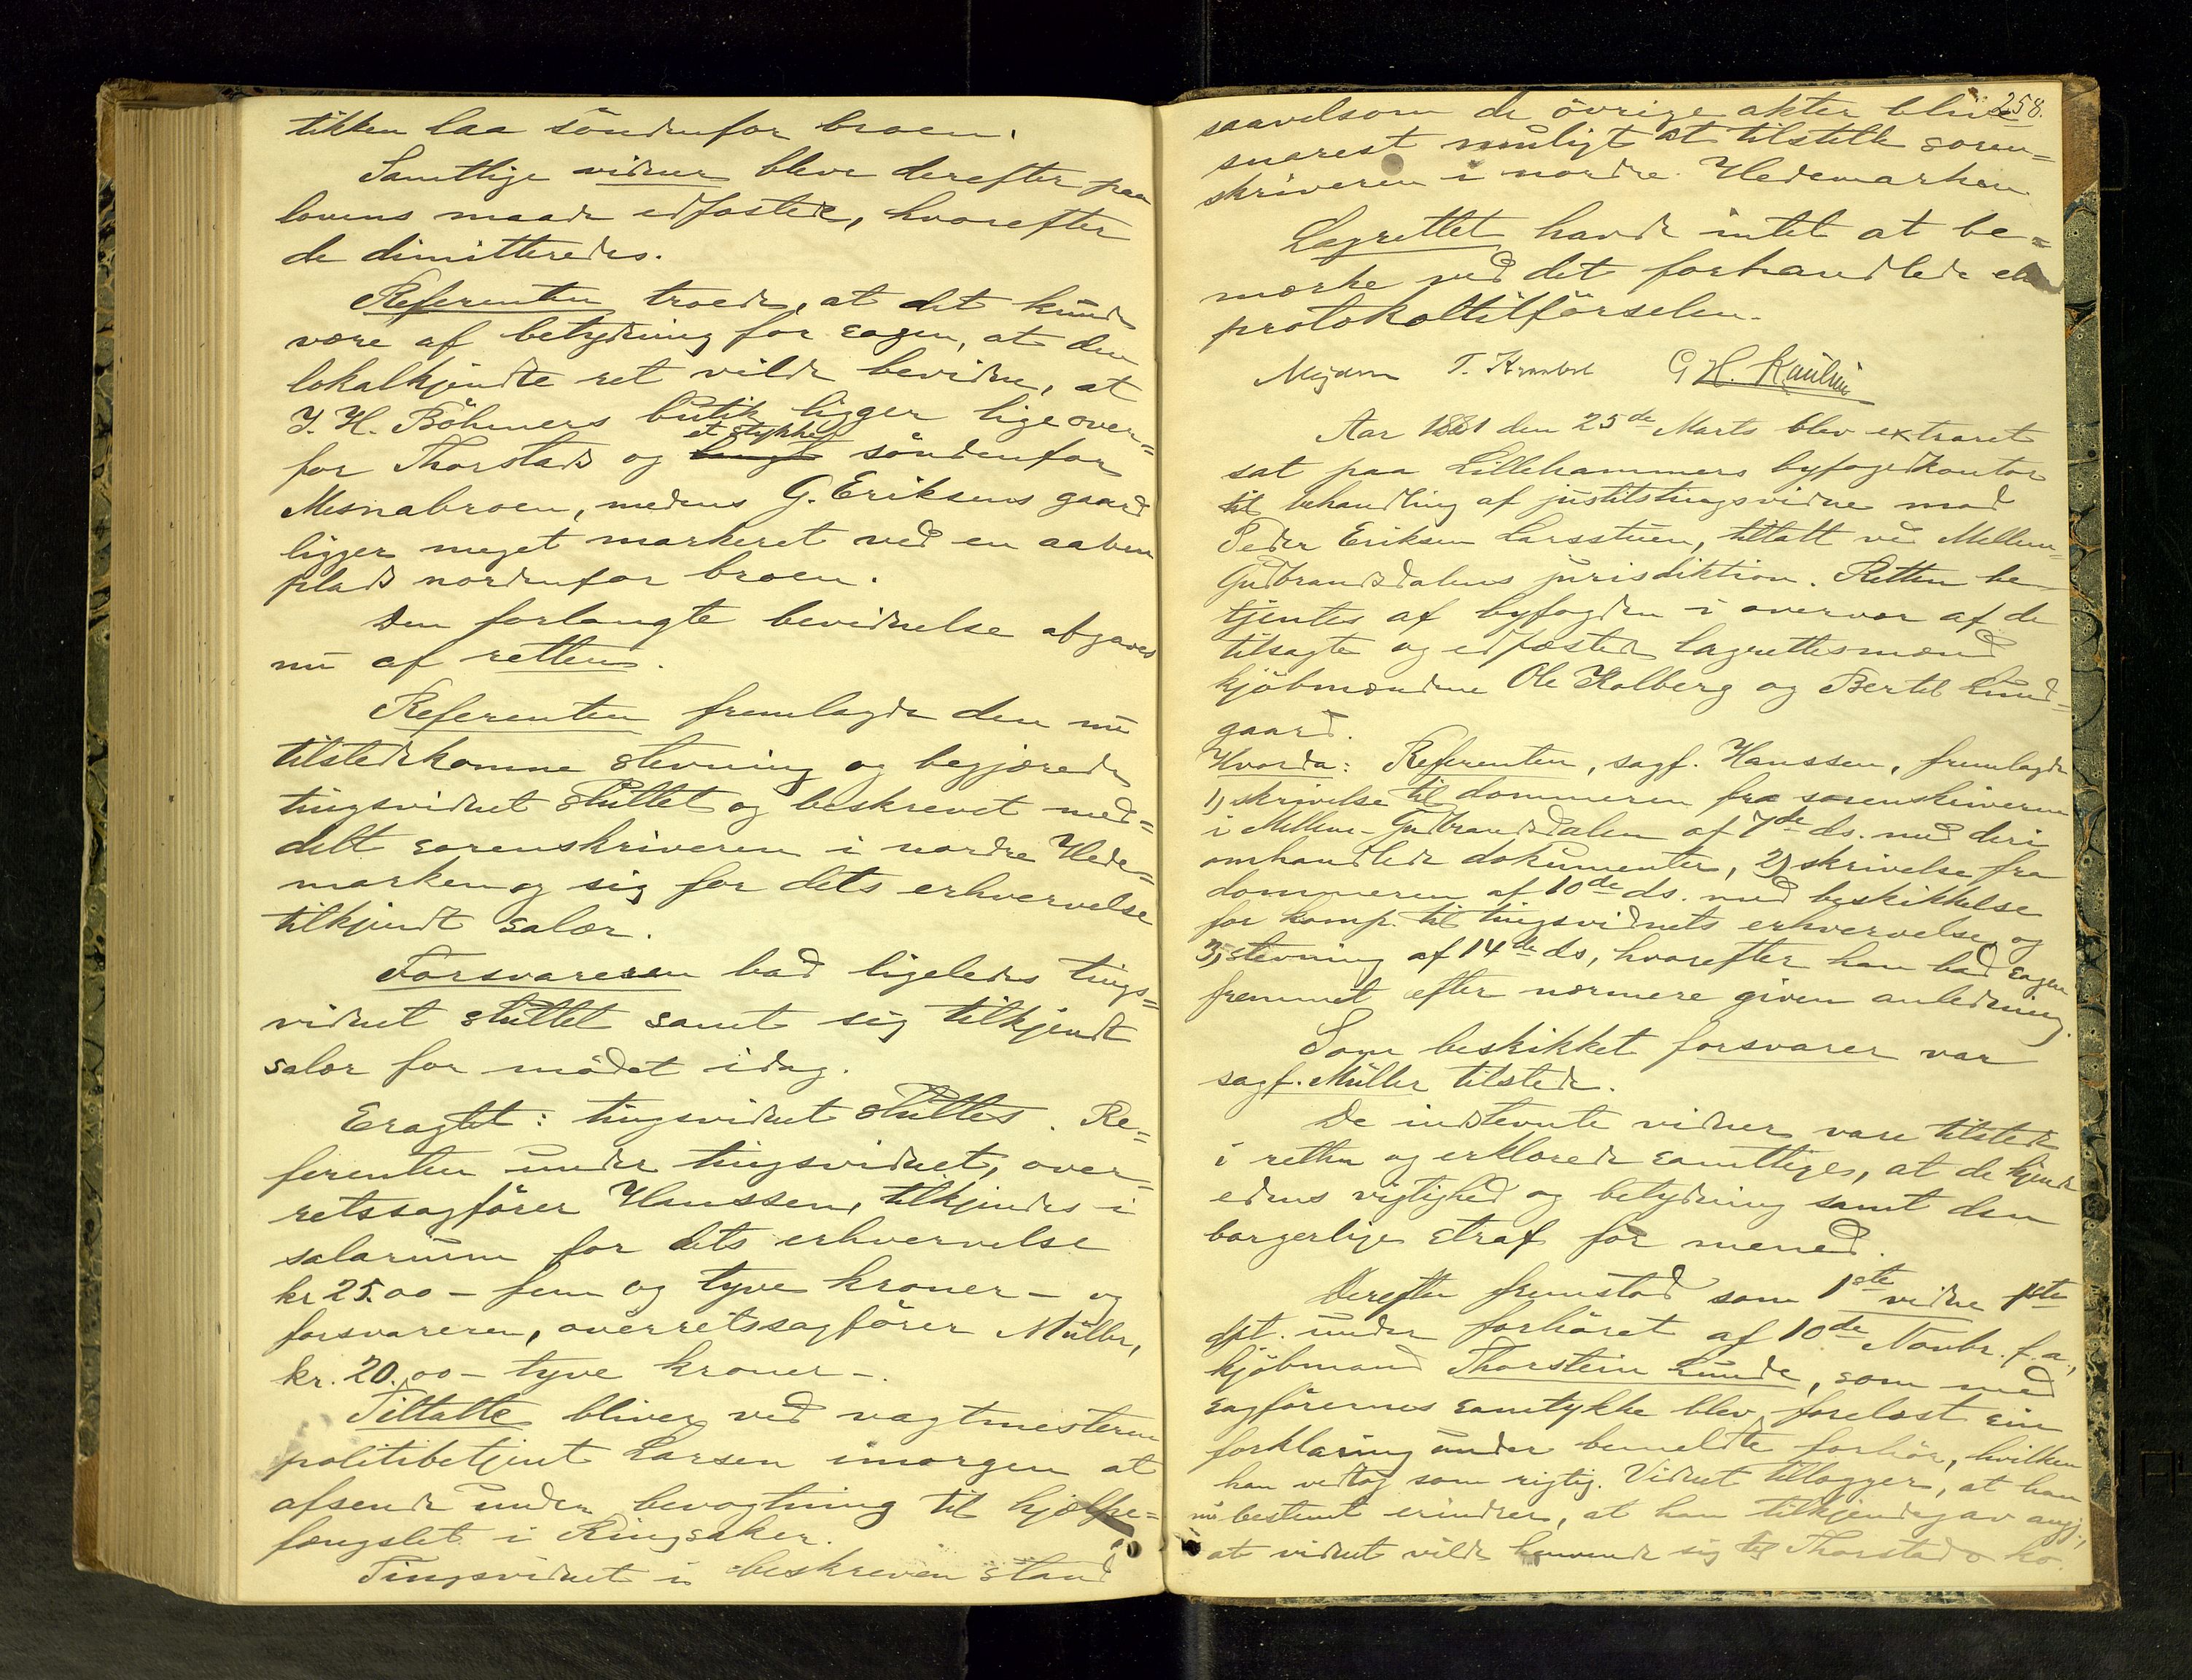 tikken laa söndenfor broen.
Samtlige vidner bleve derefter paa
lovens maade edfæstede, hvorefter
de dimitteredes.
Referenten troede, at det kunde
være af betydning for sagen, at den
lokalkjendte ret vilde bevidne, at
J. H. Böhmers butik ligger lige over-
for Thorstads og et stykke söndenfor
Mesnabroen, medens G. Eriksens gaard
ligger meget markeret ved en aaben
plads nordenfor broen.
Den forlangte bevidnelse afgaves
nu af retten.
Referenten fremlagde den nu
tilstedekomne stevning og begjærede
tingsvidnet sluttet og beskrevet med=
delt sorenskriveren i nordre Hede=
marken og sig for dets erhvervelse
tilkjendt salær.
Forsvareren bad ligeledes tings=
vidnet sluttet samt sig tilkjendt
salær for mödet idag.
Eragtet: tingsvidnet sluttes. Re=
ferenten under tingsvidnet, over=
retssagförer Hanssen, tilkjendes i
salarium for dets erhvervelse
kr 25.00 – fem og tyve kroner – og
forsvareren, overretssagförer Müller,
kr. 20.00 – tyve kroner –.
Tiltalte bliver ved vagtmesteren
politibetjent Larsen imorgen at
afsende under bevogtning til hjælpe=
fængslet i Ringsaker.
Tingsvidnet i beskreven stand
258.
saavelsom de övrige akter blive
snarest muligt at tilstille soren=
skriveren i nordre Hedemarken.
Lagrettet havde intet at be=
mærke ved det forhandlede eller
protokoltilförselen.
G H.
Aar 1881 den 25de Marts blev extraret
sat paa Lillehammers byfogedkontor
til behandling af justitstingsvidne mod
Peder Eriksen Larsstuen, tiltalt ved Mellem=
Gudbrandsdalens jurisdiktion. Retten be-
tjentes af byfogden i overvær af de
tilsagte og edfæstede lagrettesmænd
kjöbmændene Ole Holberg og Bertel Lund=
gaard.
Hvorda: Referenten, sagf. Hanssen, fremlagde
1, skrivelse til dommeren fra sorenskriveren
i Mellem-Gudbrandsdalen af 7de ds. med deri
omhandlede dokumenter, 2, skrivelse fra
dommeren af 10de ds. med beskikkelse
for komp. til tingsvidnets erhvervelse og
3, stevning af 14de ds, hvorefter han bad sagen
fremmet efter nærmere given anledning.
Som beskikket forsvarer var
sagf. Müller tilstede.
De indstevnte vidner vare tilstede
i retten og erklærede samtlige, at de kjende
edens vigtighed og betydning samt den
borgerlige straf for mened.
Derefter fremstod som 1ste vidne 1ste
dpt. under forhöret af 10de Novbr. f.a.,
kjöbmand Thorstein Lunde, som med
sagförernes samtykke blev forelæst sin
forklaring under bemeldte forhör, hvilken
han vedtog som rigtig. Vidnet tillægger, at han
nu bestemt erindrer, at han tilkjendegav angj.,
at vidnet vilde henvende sig til Thorstad & ko.